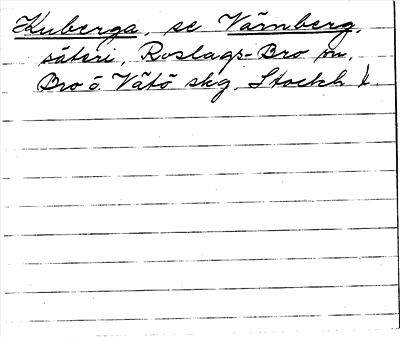 Kuberga, se Värnberg,
säteri, Roslags-Bro sn,
Bro o. Vätö skg. Stockh. l.